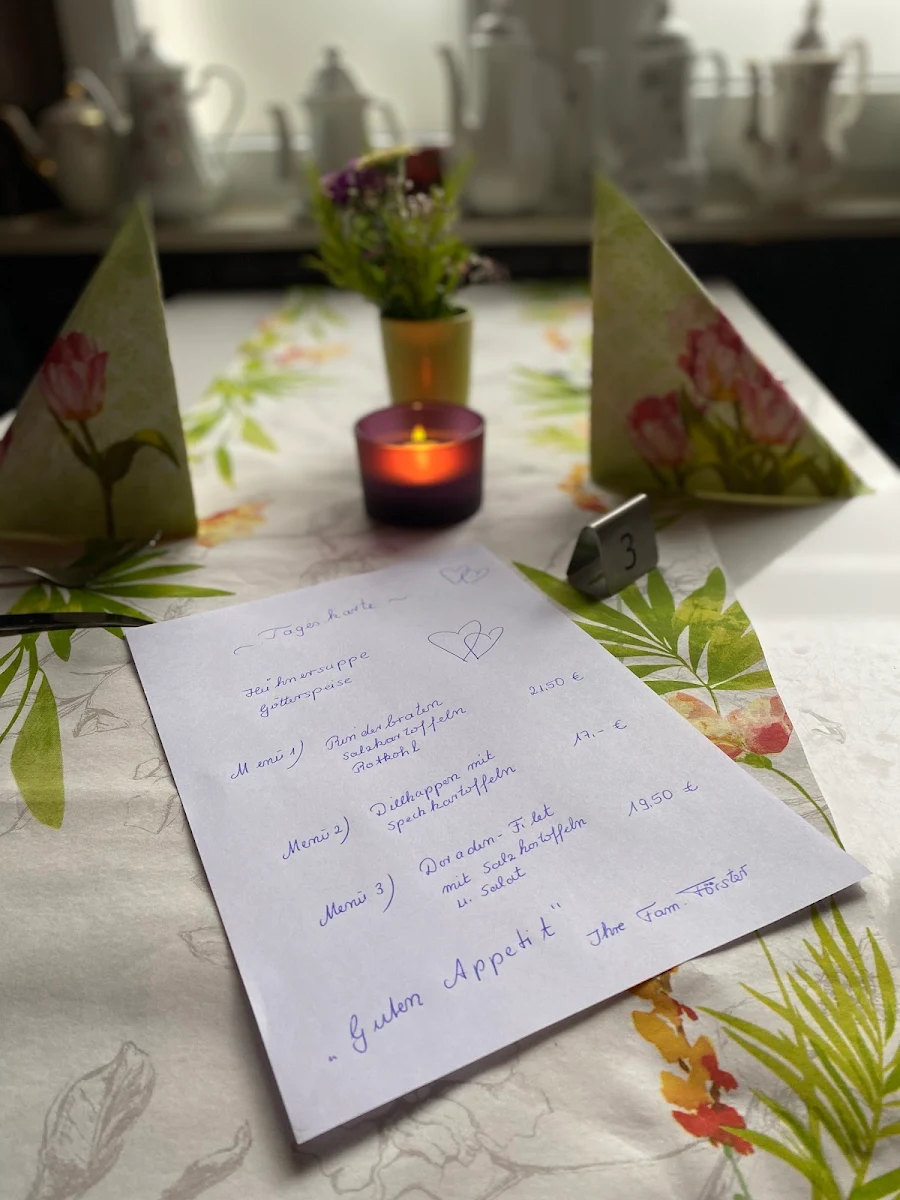 3
~ Tageskarte ~
Hühnersuppe
Götterspeise
Menü 1) Rinderbraten 21.50 €
Salzkartoffeln
Rotkohl
Menü 2) Dillhappen mit 17.- €
Speckkartoffeln
Menü 3) Doraden-Filet 19.50 €
mit Salzkartoffeln
u. Salat
„Guten Appetit"
Ihre Fam. Förster